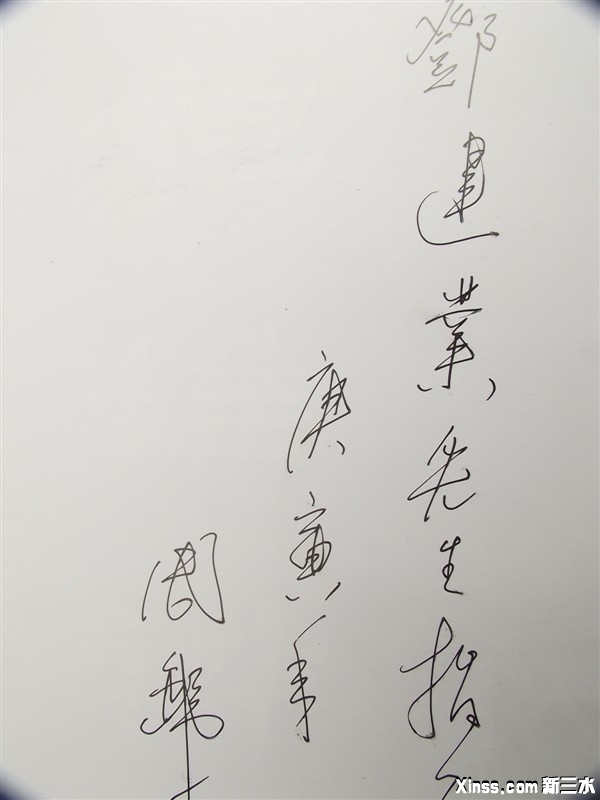 鄧建業先生指
庚寅年
周
Xinss.com 新三水